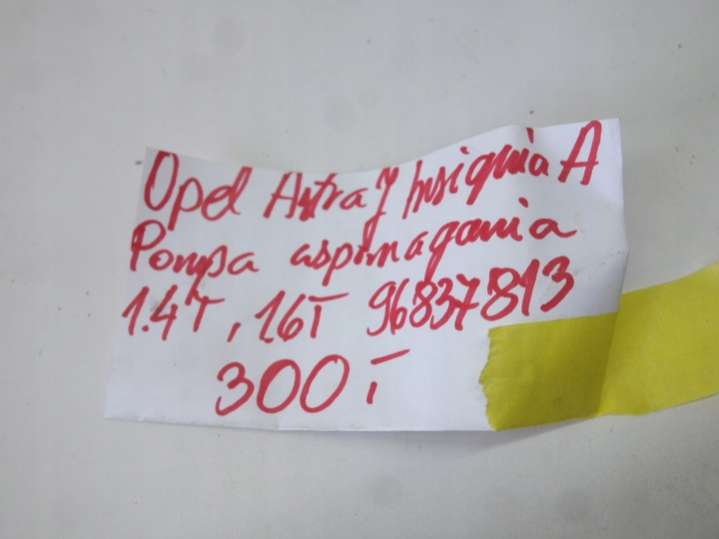 Opel Astra J Insignia A
Pompa wspomagania
1.4T, 16T 96837813
300,-